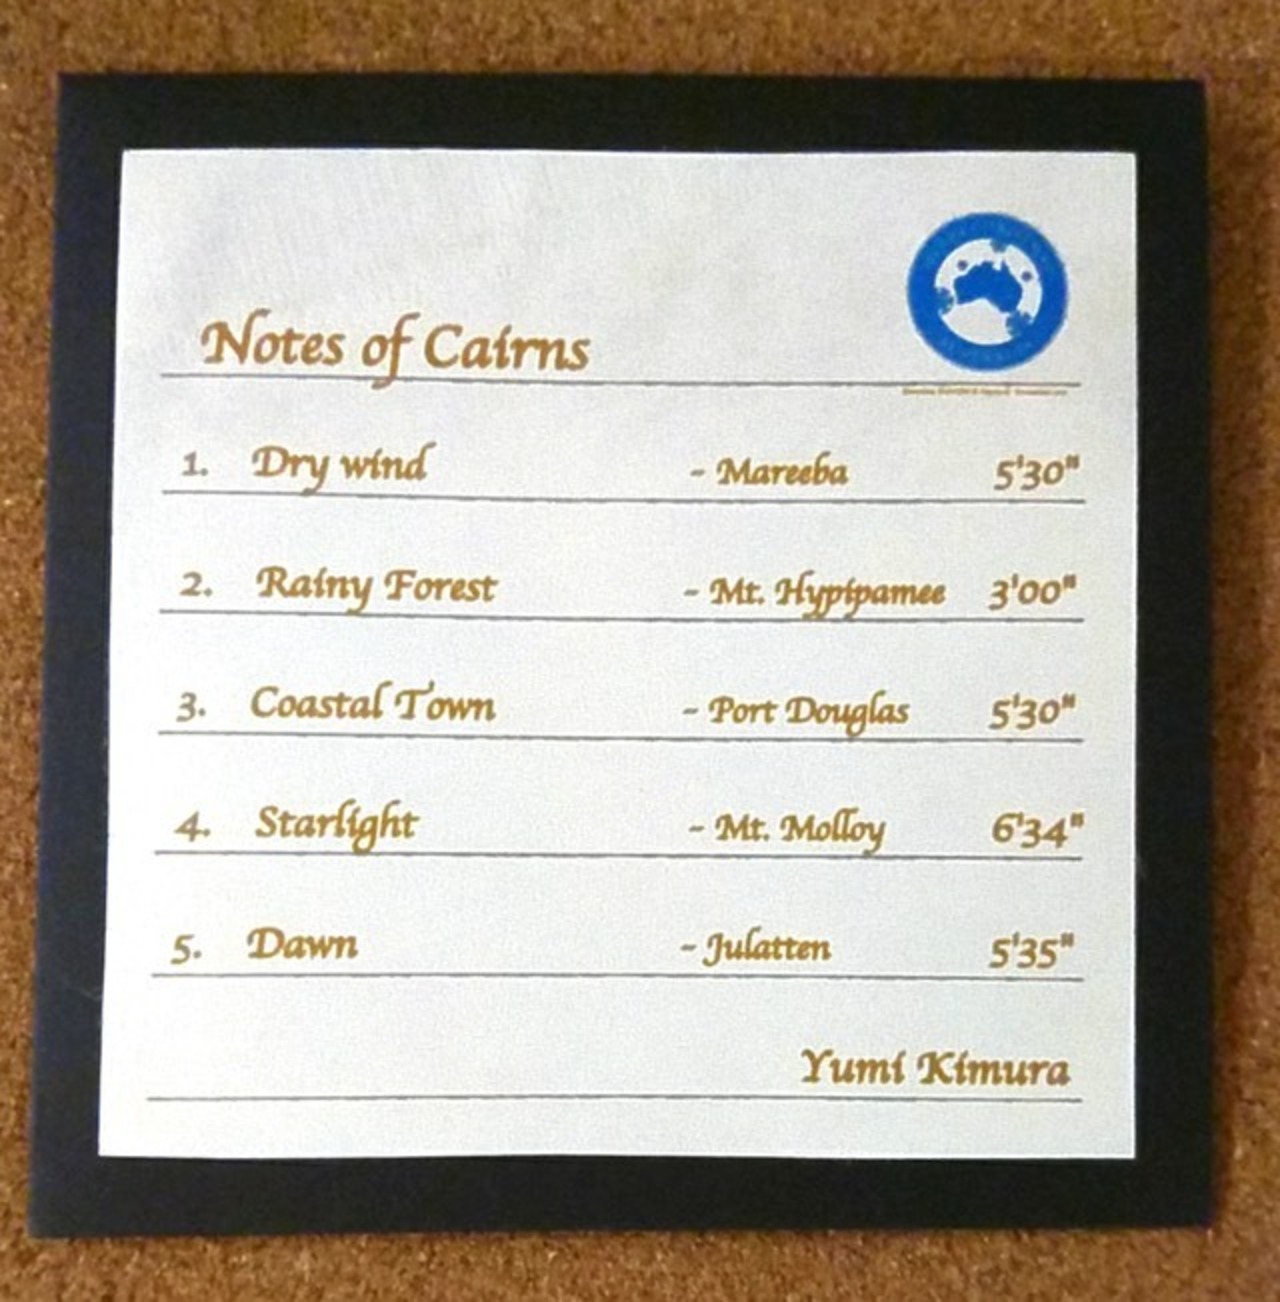 Notes of Cairns
1. Dry wind - Mareeba 5'30"
2. Rainy Forest - Mt. Hypipamee 3'00"
3. Coastal Town - Port Douglas 5'30"
4. Starlight - Mt. Molloy 6'34"
5. Dawn - Julatten 5'35"
Yumi Kimura